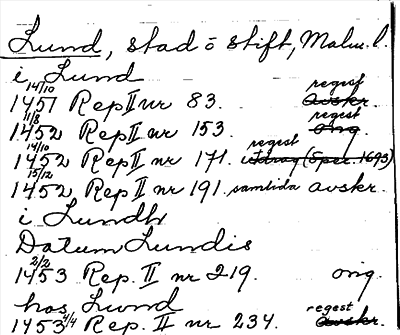 Lund, stad o stift, Malm. l.
i Lund
14/10 1451 Rep II nr 83. regest avskr.
11/8 1452 Rep II nr 153. regest orig.
14/10 1452 Rep II nr 171. regest utdrag (Spec. 1693)
15/12 1452 Rep II nr 191. samtida avskr.
i Lundh
Datum Lundis
2/2 1453 Rep. II nr 219. orig.
hos Lund
1453 4/4 Rep. II nr 234. regest avskr.